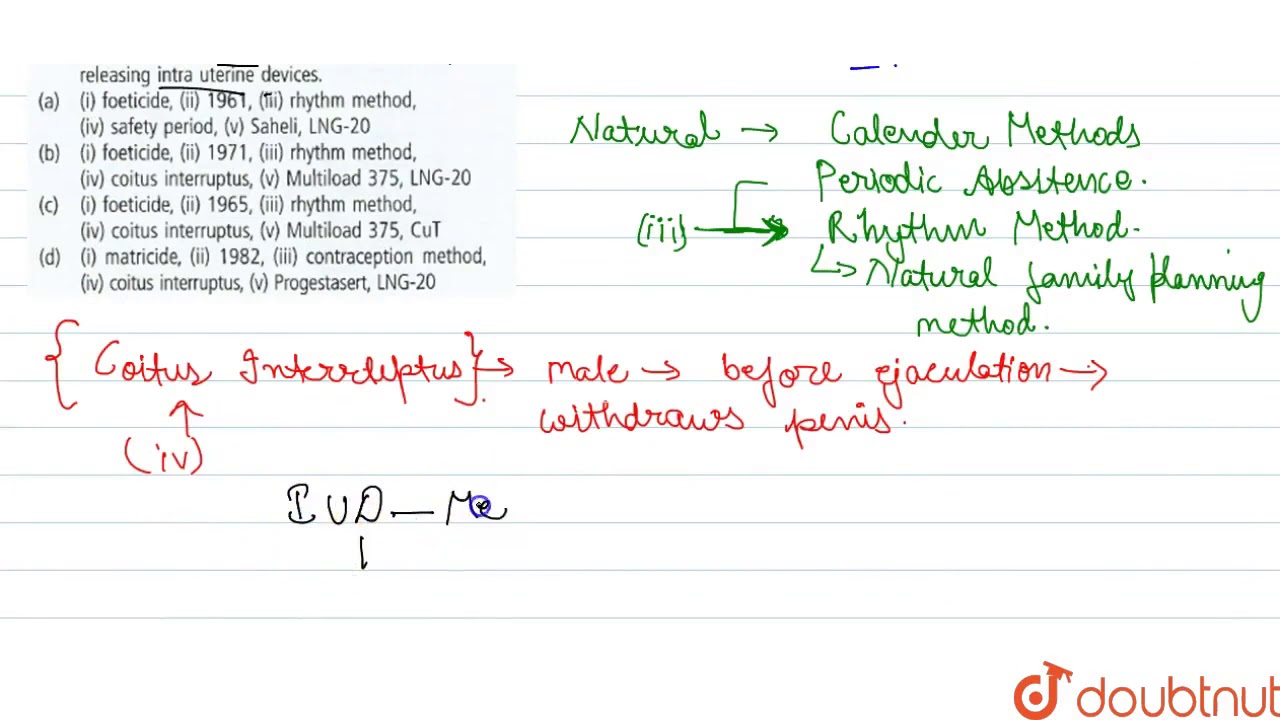 releasing intra uterine devices.
(a) (i) foeticide, (ii) 1961, (iii) rhythm method,
(iv) safety period, (v) Saheli, LNG-20
(b) (i) foeticide, (ii) 1971, (iii) rhythm method,
(iv) coitus interruptus, (v) Multiload 375, LNG-20
(c) (i) foeticide, (ii) 1965, (iii) rhythm method,
(iv) coitus interruptus, (v) Multiload 375, CuT
(d) (i) matricide, (ii) 1982, (iii) contraception method,
(iv) coitus interruptus, (v) Progestasert, LNG-20
Natural → Calender Methods
Periodic Abstence.
(iii) → Rhythm Method.
↳ Natural family planning
method.
{Coitus Interreptus} → male → before ejaculation →
withdraws penis.
(iv)
IUD — Me
doubtnut